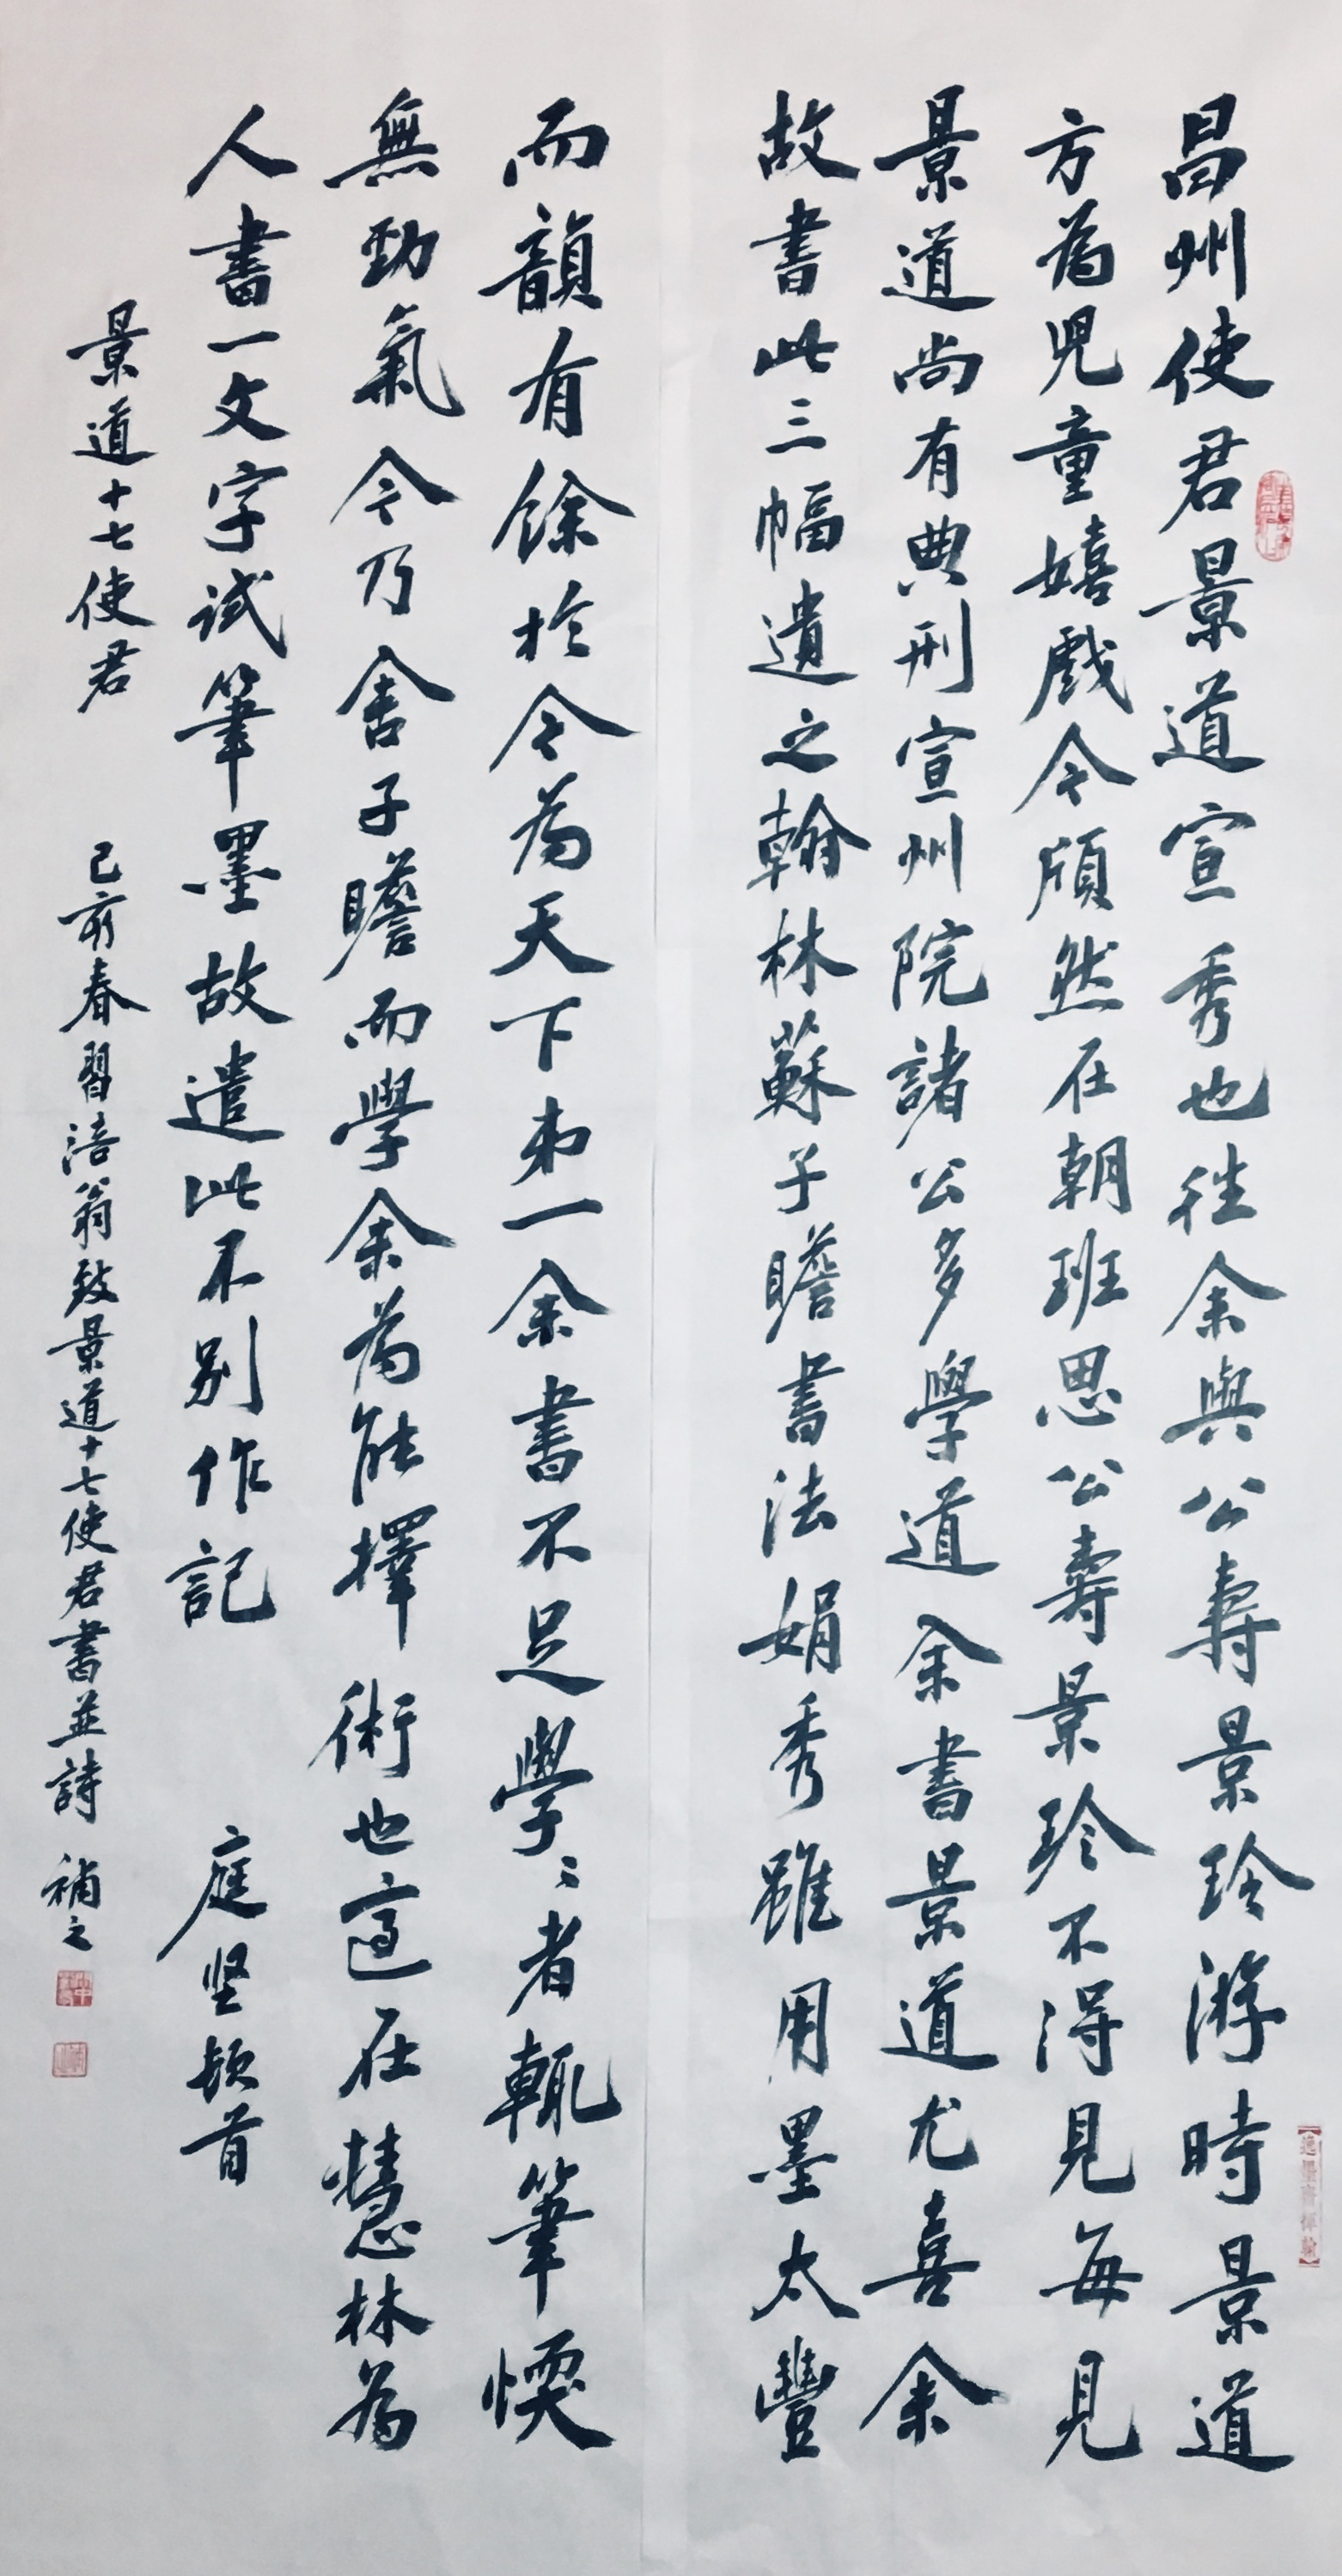 昌州使君景道宣秀也往余與公壽景珍游時景道
方為兒童嬉戲今頎然在朝班思公壽景珍不得見每見
景道尚有典刑宣州院諸公多學道余書景道尤喜余
故書此三幅遺之翰林蘇子瞻書法娟秀雖用墨太豐
而韻有餘於今為天下弟一余書不足學〻者輒筆愞
無勁氣今乃舍子瞻而學余為能擇術也適在慧林為
人書一文字試筆墨故遣此不別作記 庭坚頓首
景道十七使君 己亥春習涪翁致景道十七使君書並詩 補之